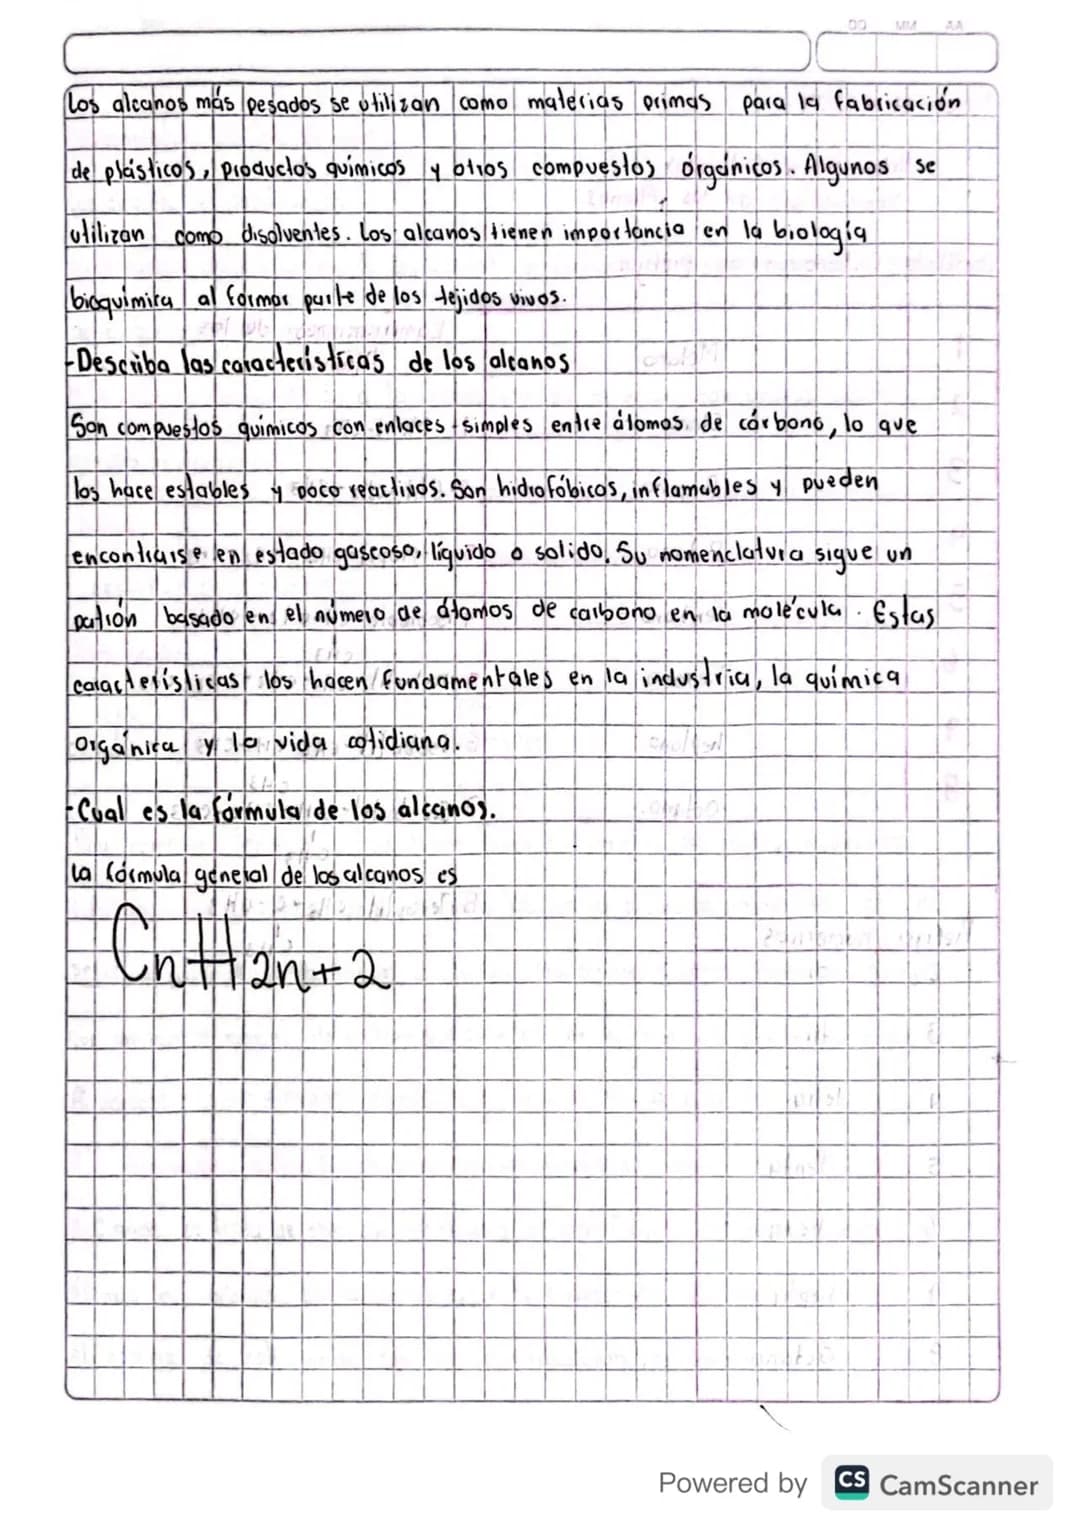 DD MM AA
Los alcanos más pesados se utilizan como materias primas para la fabricación
de plásticos, productos químicos y otros compuestos órgánicos. Algunos se
utilizan como disolventes. Los alcanos tienen importancia en la biología
bioquímica al formar parte de los tejidos vivos.
-Describa las características de los alcanos
Son compuestos químicos con enlaces simples entre átomos de cárbono, lo que
los hace estables y poco reactivos. Son hidrofóbicos, inflamables y pueden
encontrarse en estado gascoso, líquido o solido. Su nomenclatura sigue un
patión basado en el número de átomos de carbono en la molécula. Estas
características los hacen fundamentales en la industria, la química
orgánica y la vida cotidiana.
-Cual es la fórmula de los alcanos.
La fórmula general de los alcanos es
CnH2n+2
Powered by CS CamScanner